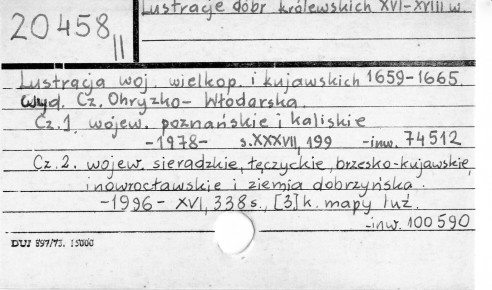 Lustracje dóbr królewskich XVI-XVIII w.
20458 II
Lustracja woj. wielkop. i kujawskich 1659-1665.
Wyd. Cz. Ohryzko-Włodarska.
Cz.1. wojew. poznańskie i kaliskie
-1978- s.XXXVII, 199 -inw. 74512
Cz.2. wojew. sieradzkie, łęczyckie, brzesko-kujawskie,
inowrocławskie i ziemia dobrzyńska.
-1996- XVI, 338 s., [3] k. mapy luź.
-inw. 100590
DUJ 897/73. 15000